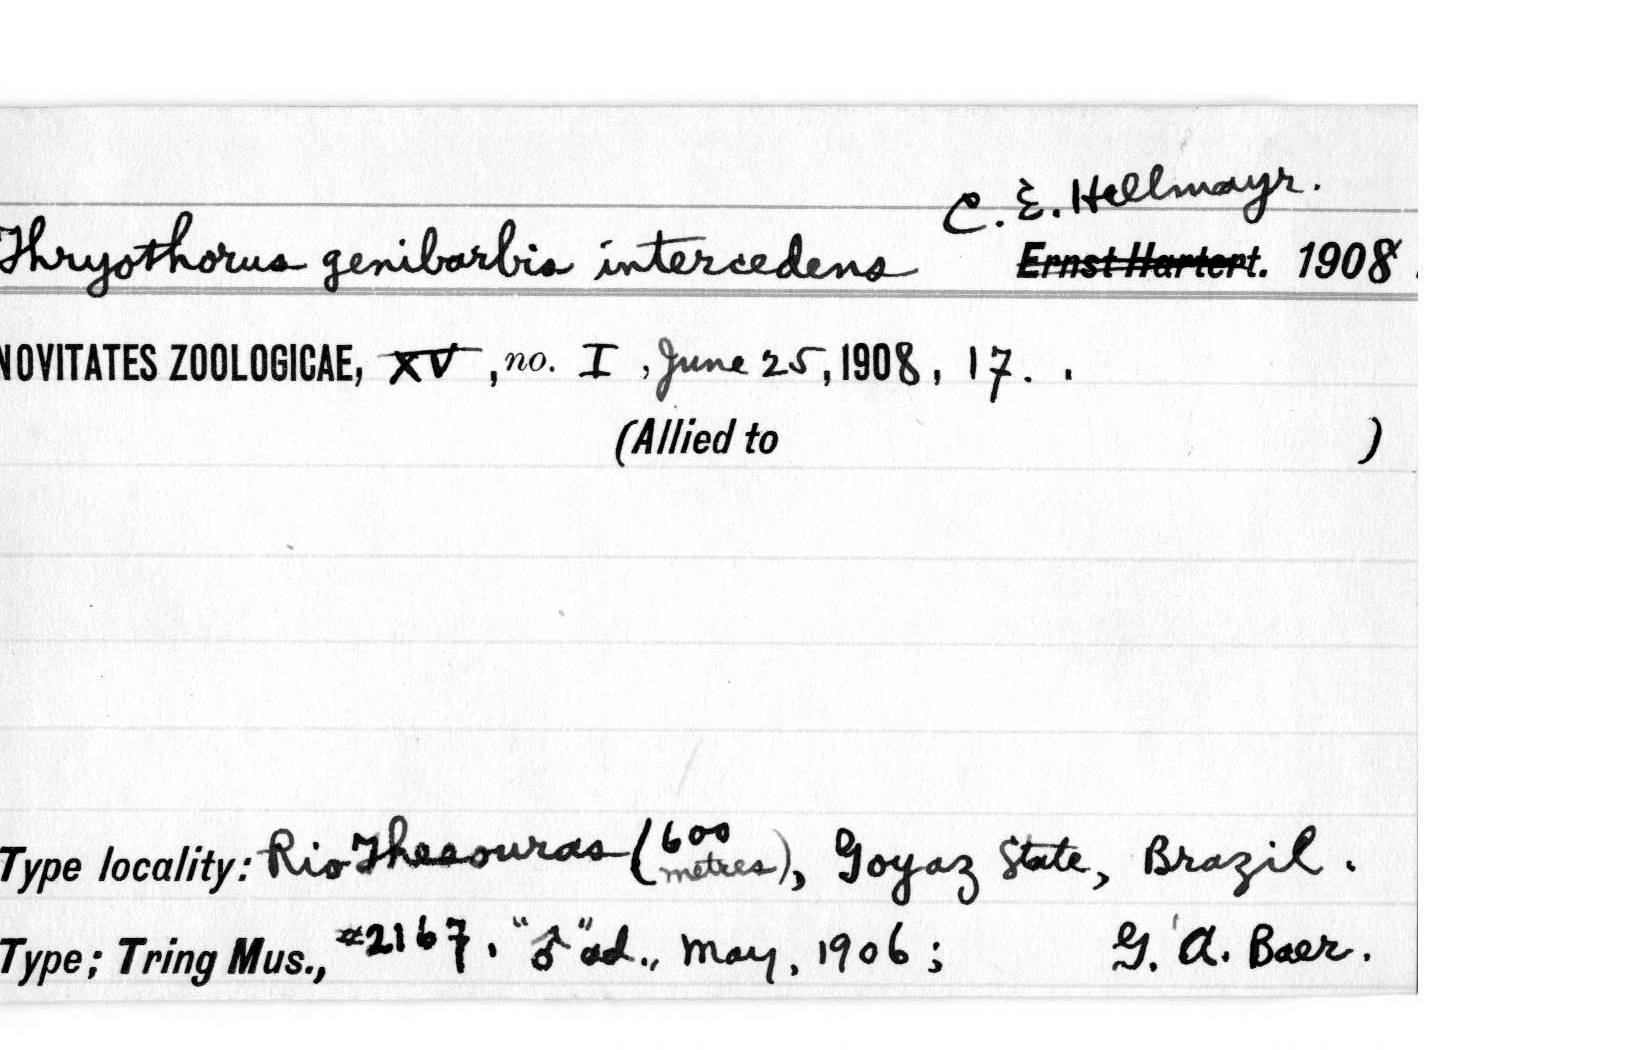 C. E. Hellmayr.
Thryothorus genibarbis intercedens Ernst Hartert. 1908.
NOVITATES ZOOLOGICAE, XV, no. I, June 25, 1908, 17. .
(Allied to )
Type locality: Rio Thesouras (600 metres), Goyaz State, Brazil.
Type; Tring Mus., #2167. "♂" ad., May, 1906; G. A. Baer.